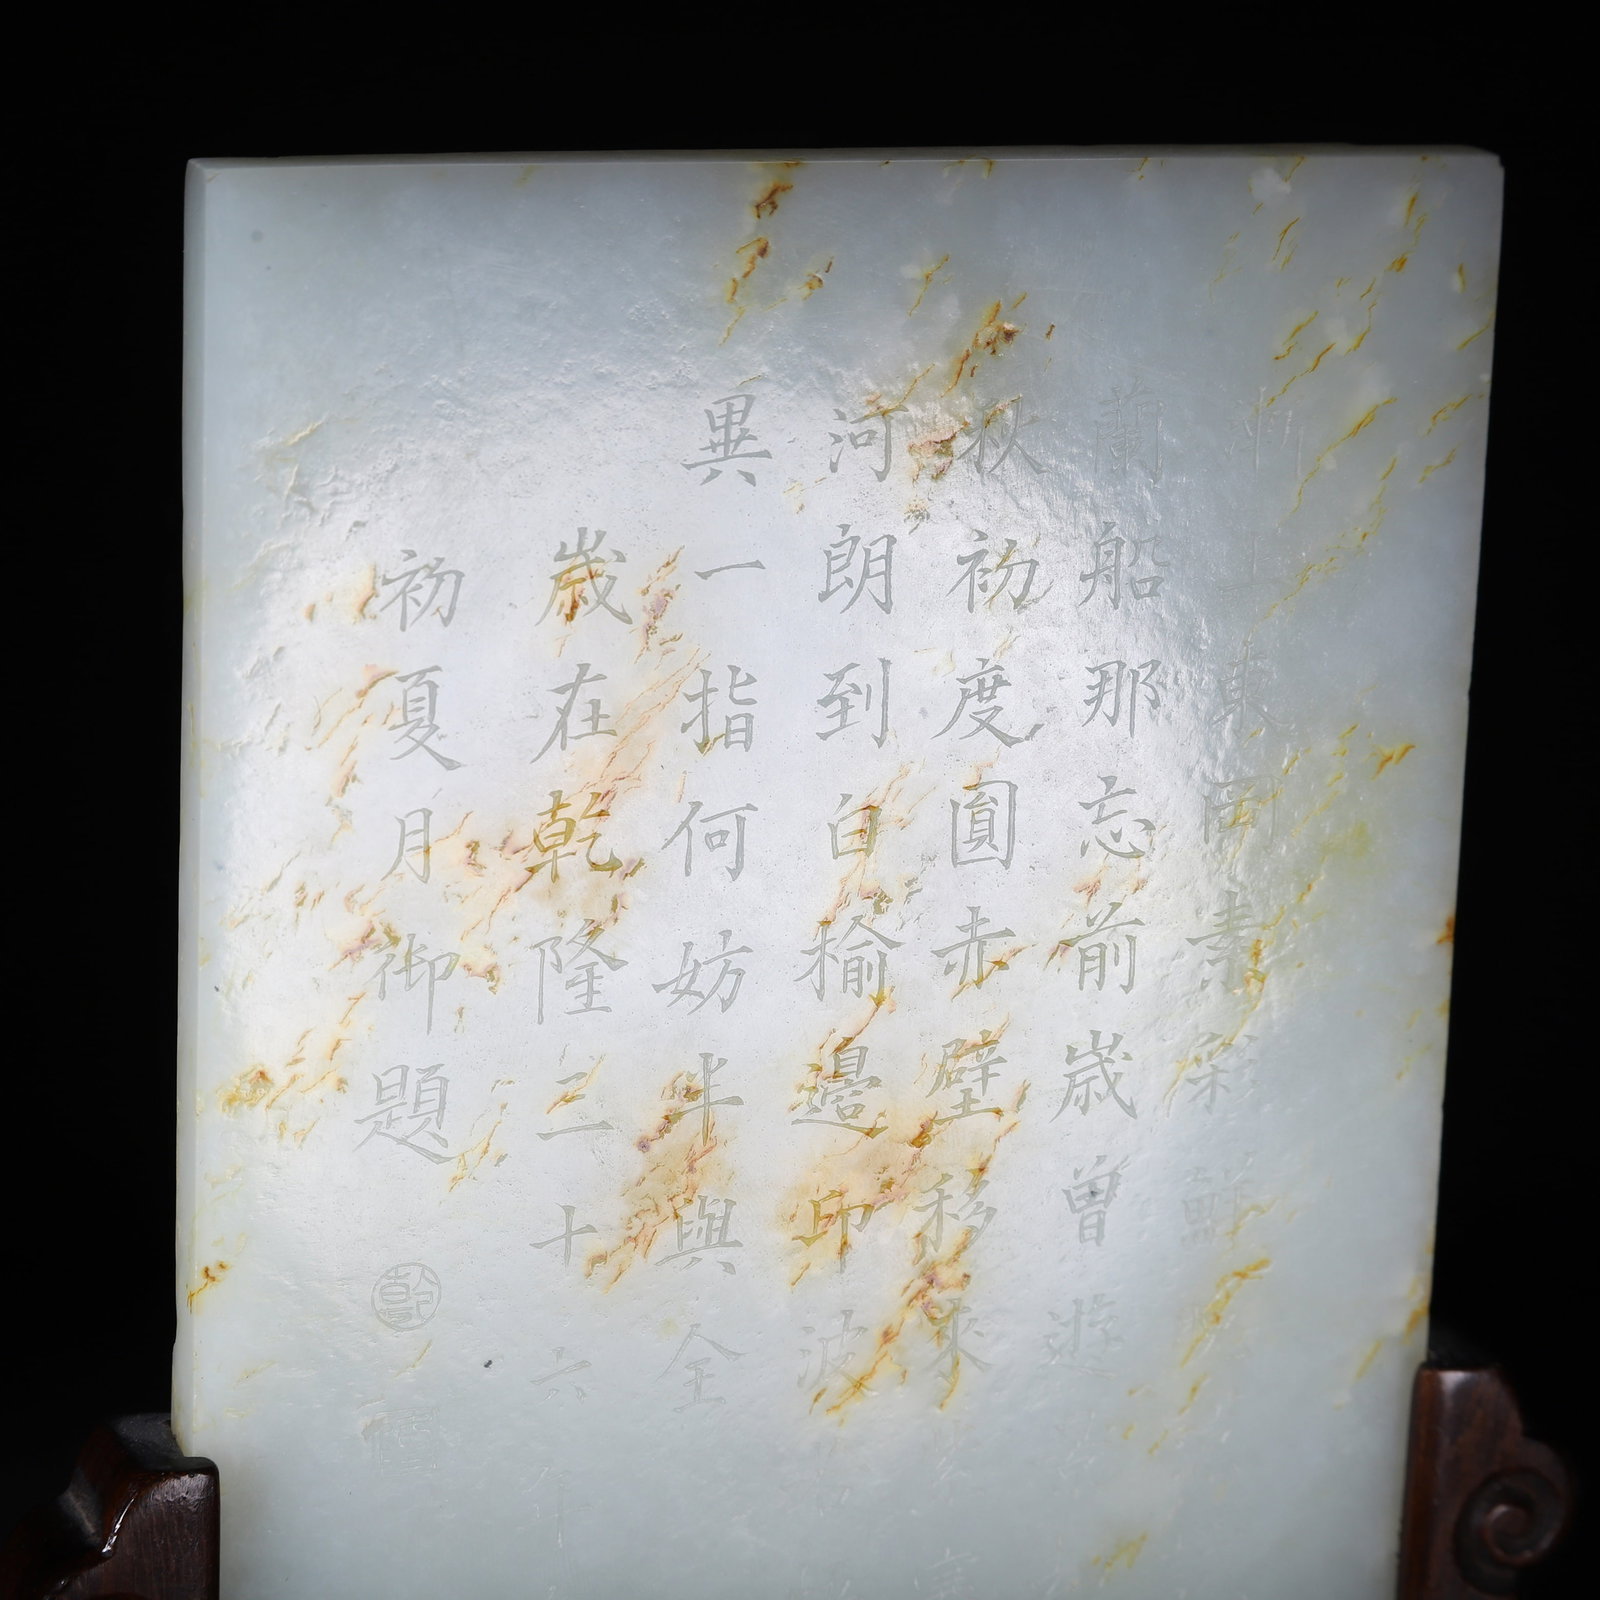 上東岡素彩鮮
蘭船那忘前歲曾遊
秋初度圓赤壁移來
河朗到白榆邊印波
異一指何妨半與全
歲在乾隆三十六
初夏月御題
乾